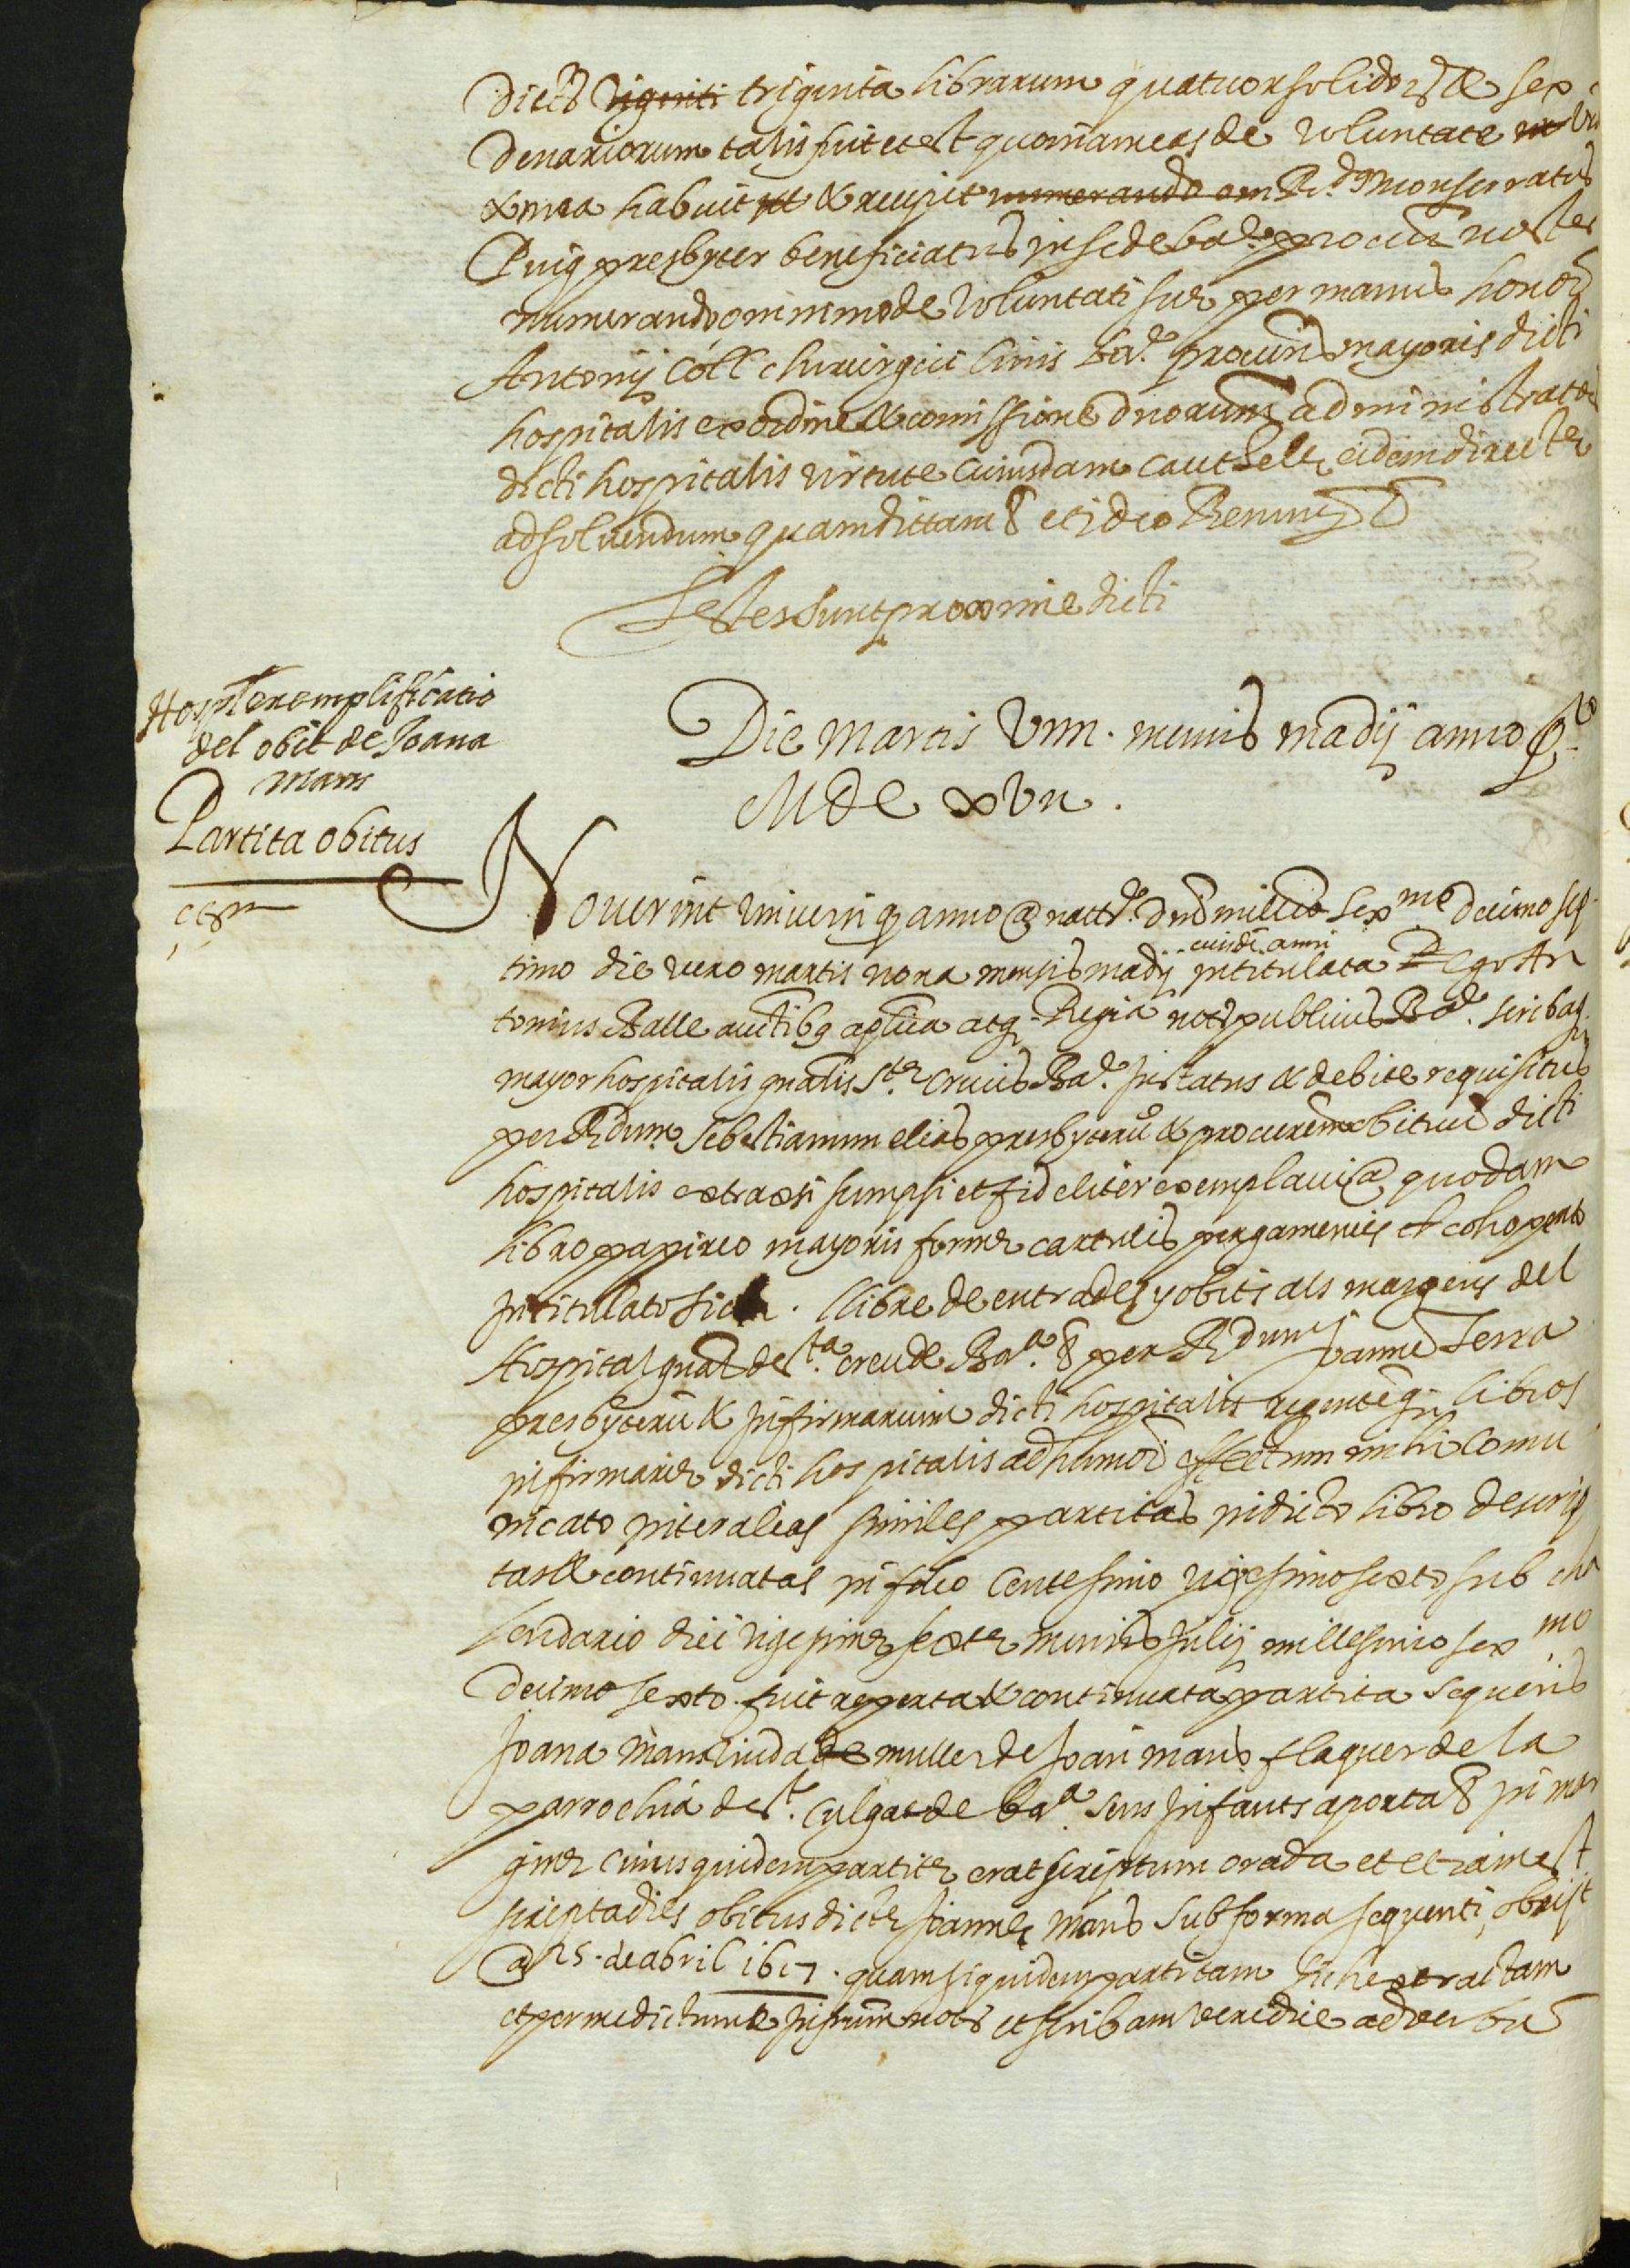 dictar̃ viginti triginta librarum quatuor solidor̃ & sex
denariorum talis fuit et est quoniam eas de voluntate
& mea habuit & recipit numerando om R.dus Monserratus
Puig presbyter beneficiatus in sede ba.e procur̃ noster
numerando omnimode voluntati suę per manus honor̃
Antonij Coll chirurgici civis Ba.e procur̃is mayoris dicti
hospitalis ex ordine & comissione dnorum administrator̃
dicti hospitalis virtute cuiusdam cauthelę eidem directę
ad solvendum quam dictam & et ideo Renun̄
Testes sunt proxime dicti
Hospl exemplificatio
del obit de Joana
Mans
Partita obitus
Die Martis Viiii. mensis madij anno p.to
MDC xvii.
Noverint universi q̃ anno @ natt.e Dñi millio sex.mo decimo sep
timo die vero martis nona mensis madij eiusdẽ anni intitulata Ego An
tonius Batlle auctibꝫ aplica atq̃ Regia not̃s publicus Ba.e scribaq̃
mayor hospitalis gñalis S.tę crucis Ba.e instatus & debite requisitus
per Rdum Sebestianum elias presbyterũ & procurẽm obituũ dicti
hospitalis extraxi sumpsi et fideliter exemplavi @ quodam
libro papireo mayoris formę cartulis pergameneis cohopento
intitulato sic. Llibre de entrades y obits als margens del
Hospital gñal de S.ta creu de Bar.a & per Rdum Joannẽ Terra
presbyterũ & infirmarium dicti hospitalis regentẽq̃ libros
infirmarię dicti hospitalis ad humõi effectum mihi comu
nicato inter alias similes partitas in dicto libro descrip
tas & continuatas in folio centesimo vigesimo sexto sub cha
lendario diei vigesimę sextę mensis Julij millesimo sex mo
decimo sexto fuit reperta & continuata partita sequens
Joana Mans viuda de muller de Joan mans flaquer de la
parrochia de S.t Culgat de ba.a sens infants aporta & in mar
ginę cuius quidem partitę erat scriptum orada et etiam est
scripta dies obitus dictę Joannę Mans sub forma sequenti, obiist
@ 25. de abril 1617. quam siquidem partitam sich extractam
et per me dictum & infrum̃ not̃ et scribam veredice ad verbũ